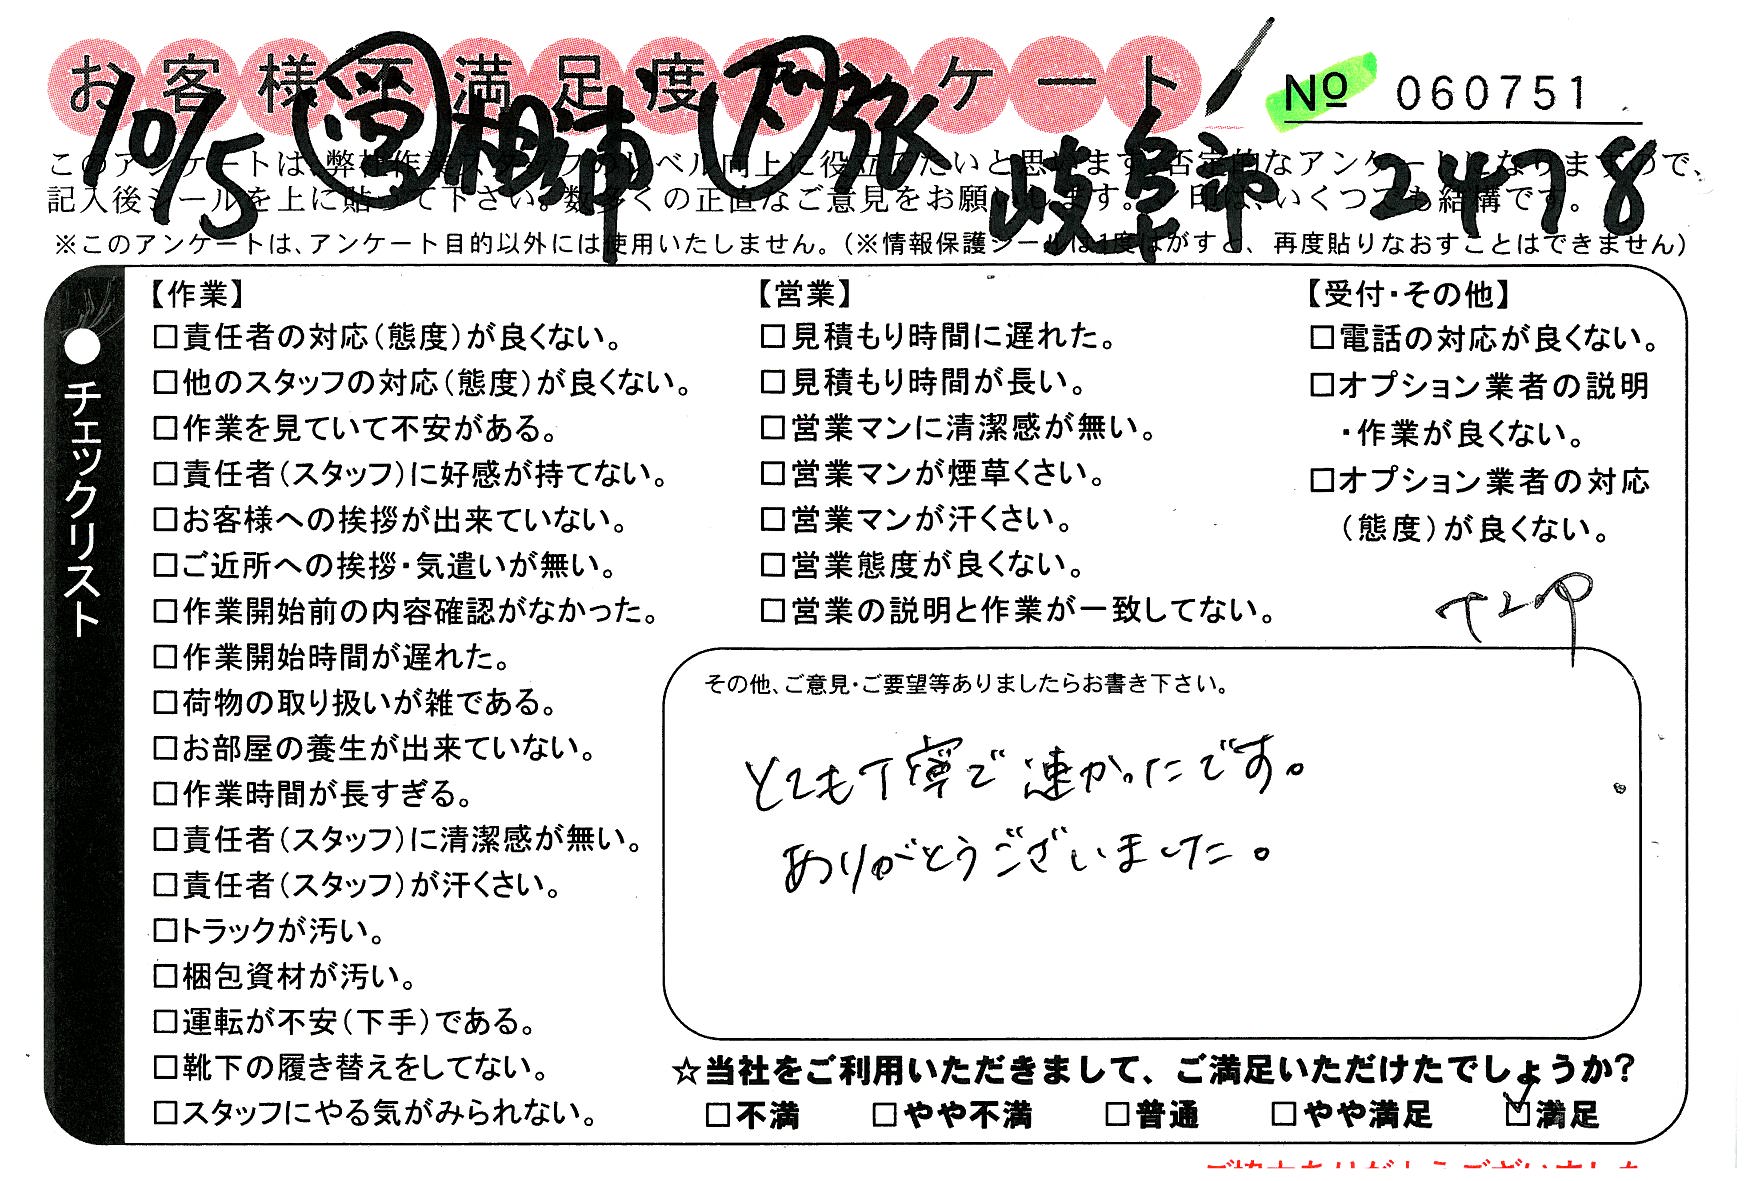 お客様不満足度アンケート
№ 060751
10/5 営 相浦 下 張 岐阜市 2478
このアンケートは、弊社作業スタッフのレベル向上に役立てたいと思います。否定的なアンケートになりますので、
記入後シールを上に貼って下さい。数多くの正直なご意見をお願いします。レ印は、いくつでも結構です。
※このアンケートは、アンケート目的以外には使用いたしません。(※情報保護シールは1度はがすと、再度貼りなおすことはできません)
●チェックリスト
【作業】
□責任者の対応(態度)が良くない。
□他のスタッフの対応(態度)が良くない。
□作業を見ていて不安がある。
□責任者(スタッフ)に好感が持てない。
□お客様への挨拶が出来ていない。
□ご近所への挨拶・気遣いが無い。
□作業開始前の内容確認がなかった。
□作業開始時間が遅れた。
□荷物の取り扱いが雑である。
□お部屋の養生が出来ていない。
□作業時間が長すぎる。
□責任者(スタッフ)に清潔感が無い。
□責任者(スタッフ)が汗くさい。
□トラックが汚い。
□梱包資材が汚い。
□運転が不安(下手)である。
□靴下の履き替えをしてない。
□スタッフにやる気がみられない。
【営業】
□見積もり時間に遅れた。
□見積もり時間が長い。
□営業マンに清潔感が無い。
□営業マンが煙草くさい。
□営業マンが汗くさい。
□営業態度が良くない。
□営業の説明と作業が一致してない。
【受付・その他】
□電話の対応が良くない。
□オプション業者の説明
・作業が良くない。
□オプション業者の対応
(態度)が良くない。
その他、ご意見・ご要望等ありましたらお書き下さい。
とても丁寧で速かったです。
ありがとうございました。
☆当社をご利用いただきまして、ご満足いただけたでしょうか?
□不満 □やや不満 □普通 □やや満足 ☑満足
ご協力ありがとうございました